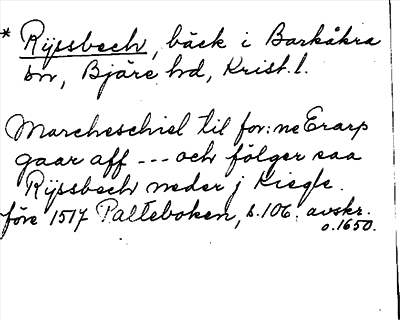 * Rijssbech, bäck i Barkåkra
sn, Bjäre hd, Krist. l.
Marcheschiel til for:ne Erarp
gaar aff --- och fölger saa
Rijssbech neder j Kiegle.
före 1517 Palteboken, s. 106. avskr.
o. 1650.